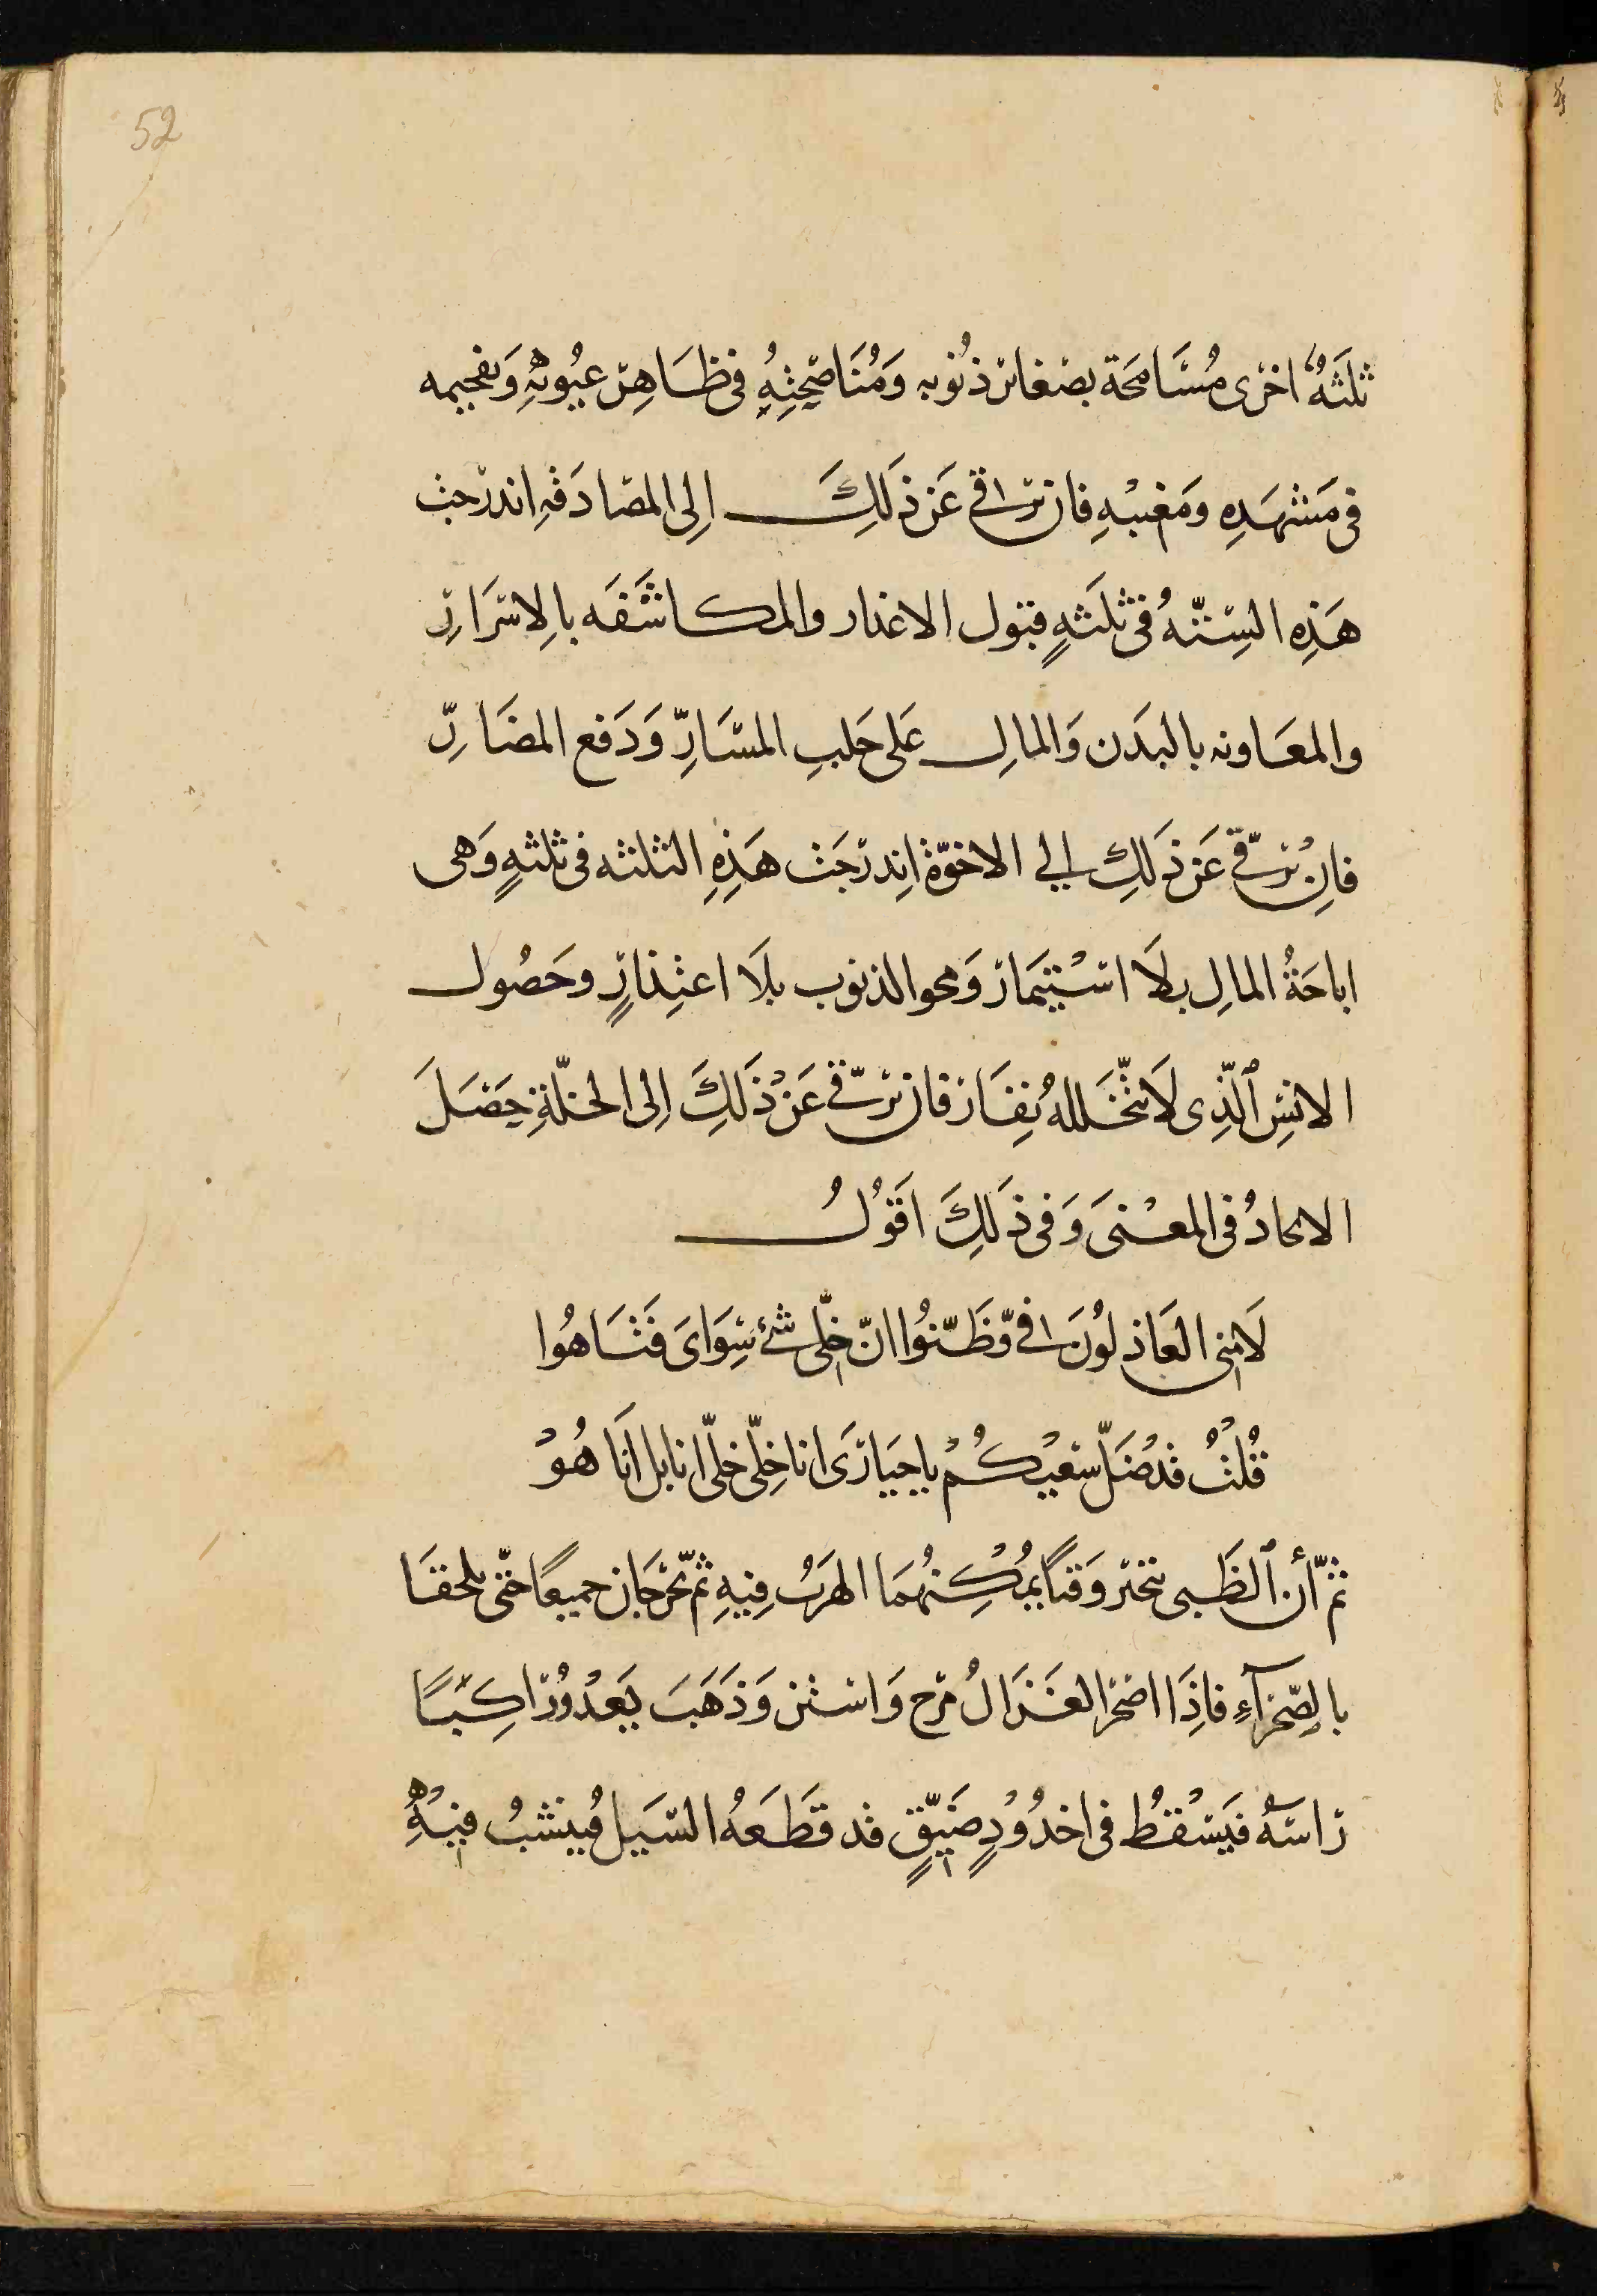 52
ثلثةٌ اخرى مُسَامحَة بصغائر ذنُوبه وَمُنَاصَحِتِهِ في ظَاهِر عيُوبهِ وَتفخيمه
في مَشْهَدِه وَمَغيبْهِ فان تراقى عَن ذَلِكَ الى المصَادَقهِ اندرَجت
هَذِهِ السِتّهُ في ثلَثهٍ قبَول الاعذار والمكاشَفَه بالِاسَرَارِ
والمعَاونه بالبدَن وَالمالِ عَلى جَلبِ المسَارِّ وَدَفع المضَارِّ
فاِنْ ترَقّى عَن ذَلكِ الي الاخوّة اِندرَجَت هَذِهِ الثلثه في ثلثهٍ وَهى
اباحَةُ المالِ بلَا اسْتيَمار وَمحو الذنوب بلَا اعتِذارٍ وحَصُول
الانسِ ٱلَّذِى لَا يتَخَّلله نِفَار فان ترَقّى عَن ذَلَكَِ الى الخلّةِ حَصَلَ
الاتحادُ في المعْنىَ وَفى ذَلِكَ اَقوُلُ
لَامَنى العَاذلوُنَ فيَّ وَظَنّوُا انّ خِلّى شئ سِوَاىَ فَتَاهُوا
قُلْتُ قد ضَلّ سَعيْكُمْ يا حيَارَى انا خِلّى خلّى انا بل اَنَا هُوْ
ثمّ أن ٱلظَبى تخيّر وَقتًا يمُكِنهُمَا الهرَبُ فِيهِ ثم يخَرجَان جميعًا حَتى يلحقَا
بالصَحَرآءِ فاِذَا اصَحَر الغَزَالُ مَرح وَاستن وَذَهَبَ يَعدْوُ رَاكِبًا
رَاسَهُ فَيسْقطُ في اخدُوْدٍ ضَيّقٍ قد قَطَعَهُ السَيل فُينشبُ فيْهِ